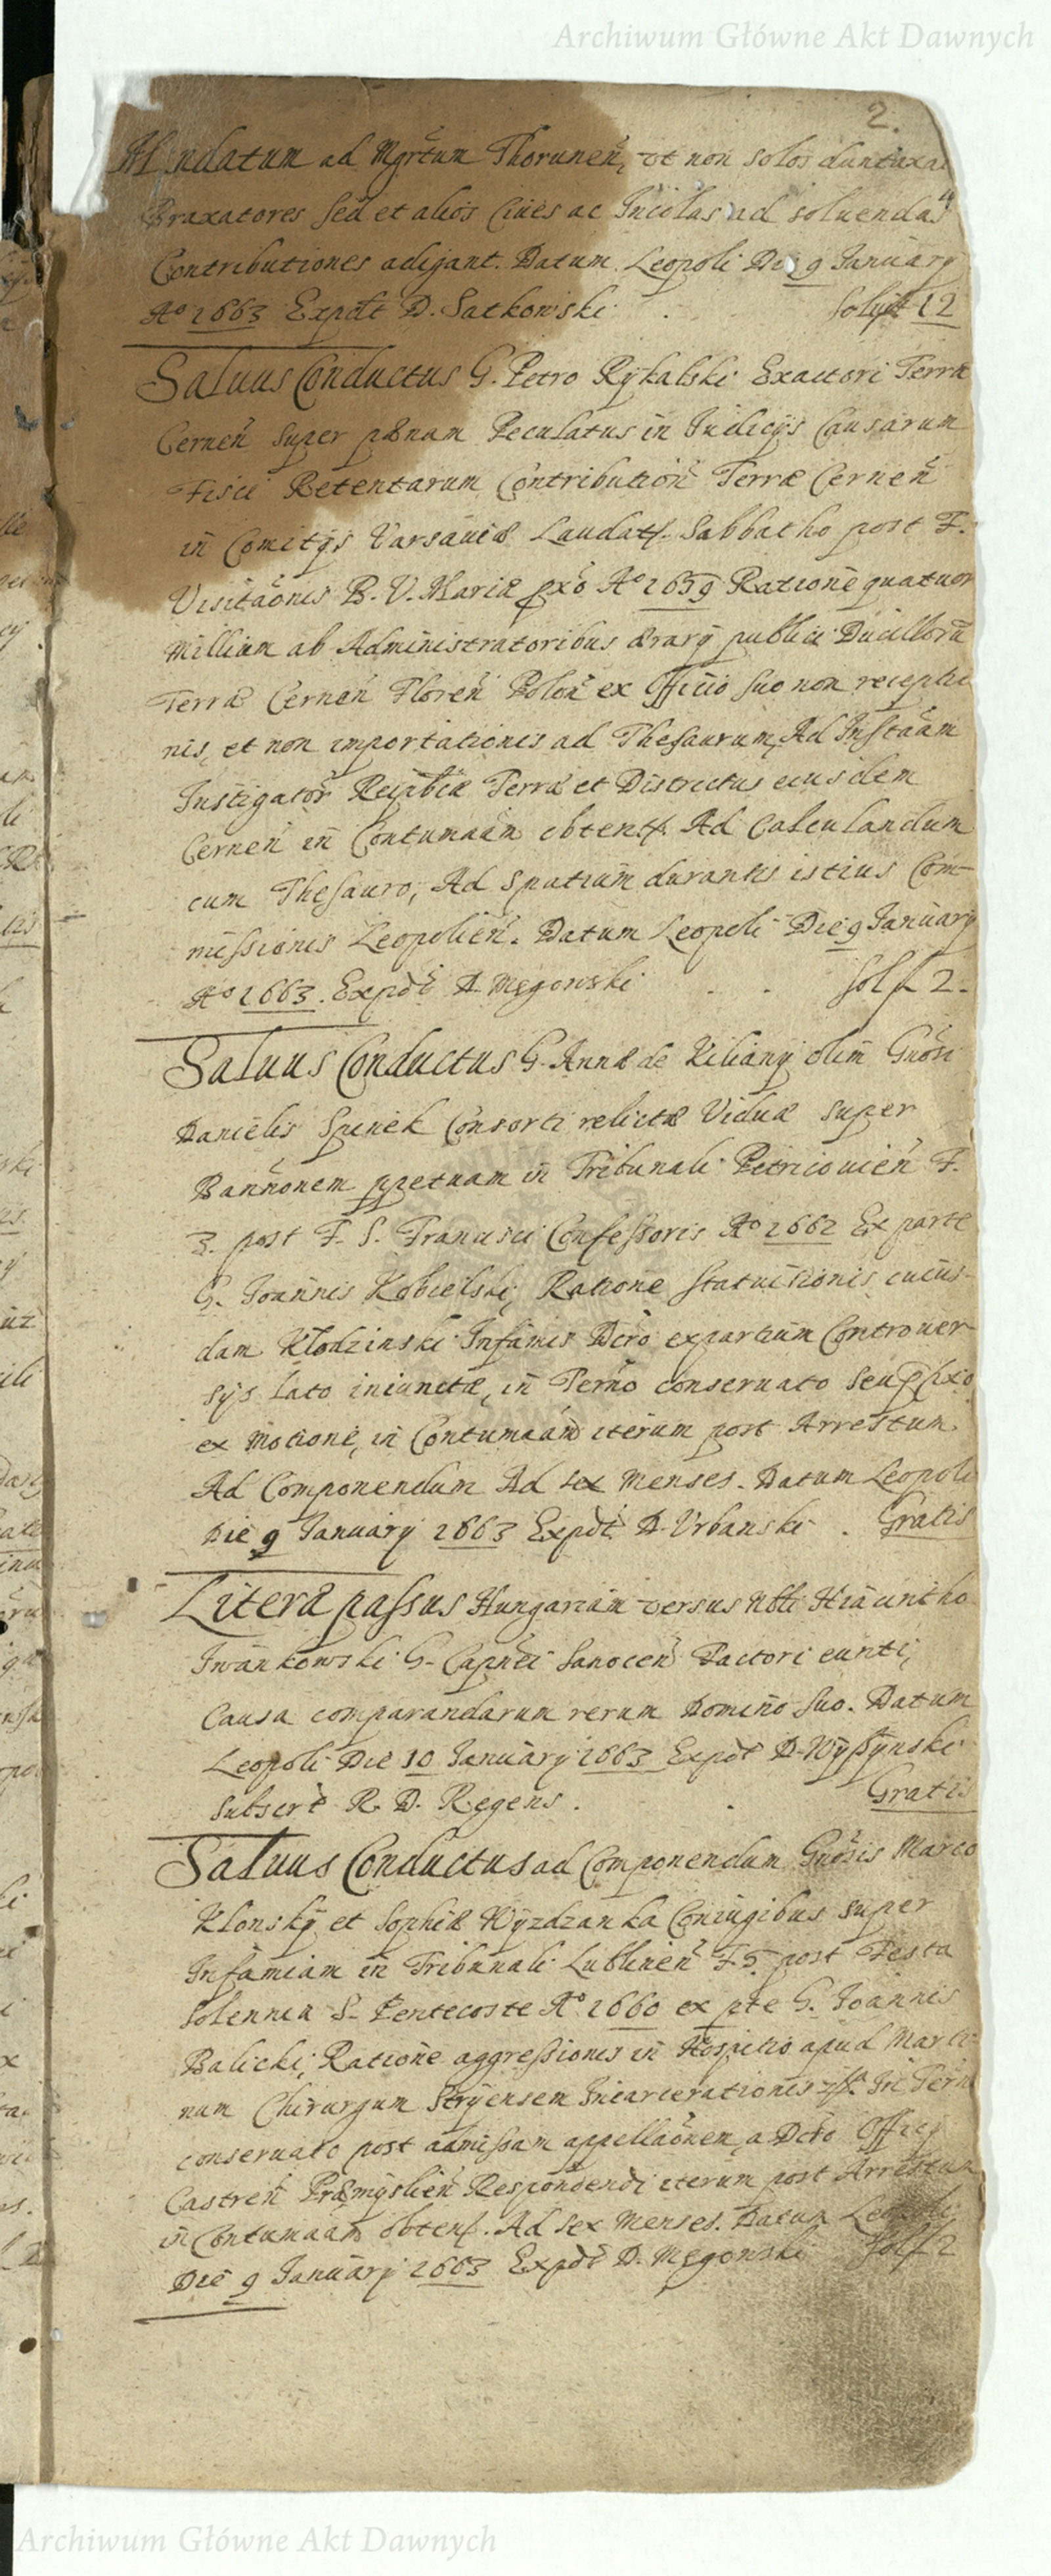 Archiwum Główne Akt Dawnych
2.
Mandatum ad Mgrtum Thorunen̄, vt non solos duntaxat
Braxatores sed et alios Ciues ac Incolas ad soluendas
Contributiones adigant. Datum Leopoli Die 9 Januarÿ
Aº 1663 Expdt D. Satkowski . Solut 12
Saluus Conductus G. Petro Rykalski Exactori Terræ
Cernen̄ super pœnam Peculatus in Judicÿs Causarum
Fisci Retentarum Contribution̄ Terræ Cernen̄
in Comitÿs Varsauiæ Laudat. Sabbatho post F.
Visitãonis B. V. Mariæ pxõ Aº 1659 Ratione quatuor
Millium ab Administratoribus ærarÿ publici Ducillorũ
Terræ Cernen̄ Floren̄ Polon̄ ex Officio suo non receptio
nis, et non importationis ad Thesaurum, Ad Instãam
Instigator̄ Reipbcæ Terræ et Districtus eiusdem
Cernen̄ in Contumaãm obtent. Ad Calculandum
cum Thesauro, Ad spatium durantis istius Com-
missionis Leopolien̄. Datum Leopoli Die 9 Januarÿ
Aº 1663. Expdt D Męgowski . . sol f 2.
Saluus Conductus G. Annæ de Kilianÿ olim Gnosi
Danielis Spinek Consorti relictæ Viduæ super
Bannonem ppetuam in Tribunali Petricouien̄ F.
3. post F. S. Francisci Confessoris Aº 1662 Ex parte
G. Joannis Kobielski, Ratione statuitionis cuius-
dam Kłodzinski Infamis Dcro ex partium Controuer-
sÿs lato iniunctæ, in Termo conseruato seu pfixo
ex Motione, in Contumaãm iterum post Arrestum
Ad Componendum Ad sex Menses. Datum Leopoli
Die 9 Januarÿ 1663 Expdt D. Vrbanski . Gratis
Literæ passus Hungariam versus Nobli Hiacintho
Iwankowski G. Capnei Sanocen̄ Factori eunti,
Causa comparandarum rerum Domino suo. Datum
Leopoli Die 10 Januarÿ 1663 Expdt D. Wyszynski
Subscrt R. D. Regens . . Gratis
Saluus Conductus ad Componendum Gnosis Marco
Klonskÿ et Sophiæ Wyzdzanka Coniugibus super
Infamiam in Tribunali Lublinen̄ F 5. post Festa
Solennia S. Pentecoste Aº 1660 ex pte G. Joannis
Balicki, Ratione aggressionis in Hospitio apud Marti-
num Chirurgum Stryensem Incarcerationis In Termo
conseruato post admissam appellaõnem a Dcto Officÿ
Castren̄ Præmyslien̄ Respondendi iterum post Arrestum
in Contumaãm obtent. Ad sex Menses. Datum Leopoli
Die 9 Januarÿ 1663 Expdt D. Męgowski sol f 2
Archiwum Główne Akt Dawnych